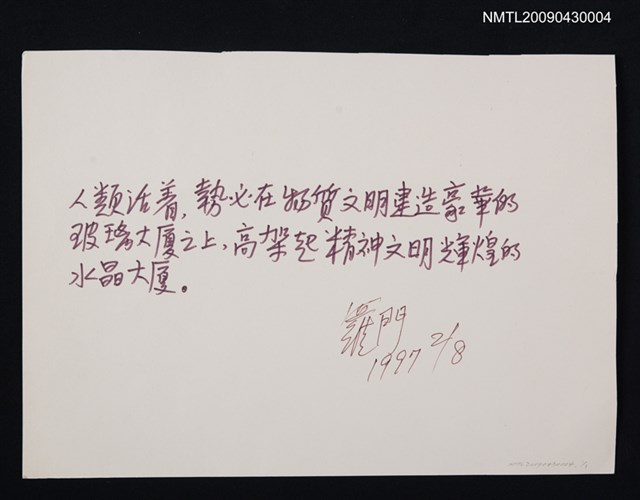 NMTL20090430004
人類活着，勢必在物质文明建造豪華的
玻璃大厦之上，高架起精神文明輝煌的
水晶大厦。
羅門
1997 2/8